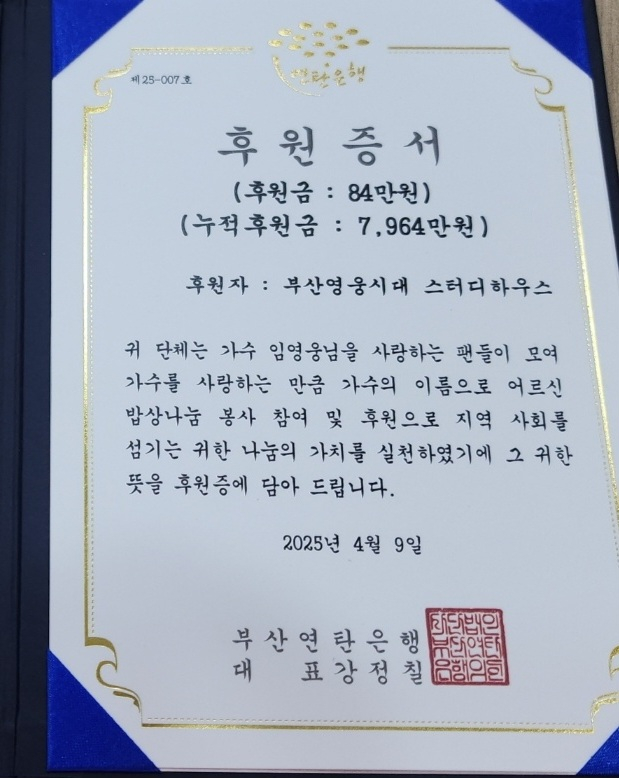 연탄은행
제25-007호
후원증서
(후원금 : 84만원)
(누적후원금 : 7,964만원)
후원자 : 부산영웅시대 스터디하우스
귀 단체는 가수 임영웅님을 사랑하는 팬들이 모여
가수를 사랑하는 만큼 가수의 이름으로 어르신
밥상나눔 봉사 참여 및 후원으로 지역 사회를
섬기는 귀한 나눔의 가치를 실천하였기에 그 귀한
뜻을 후원증에 담아 드립니다.
2025년 4월 9일
부산연탄은행
대 표강정칠